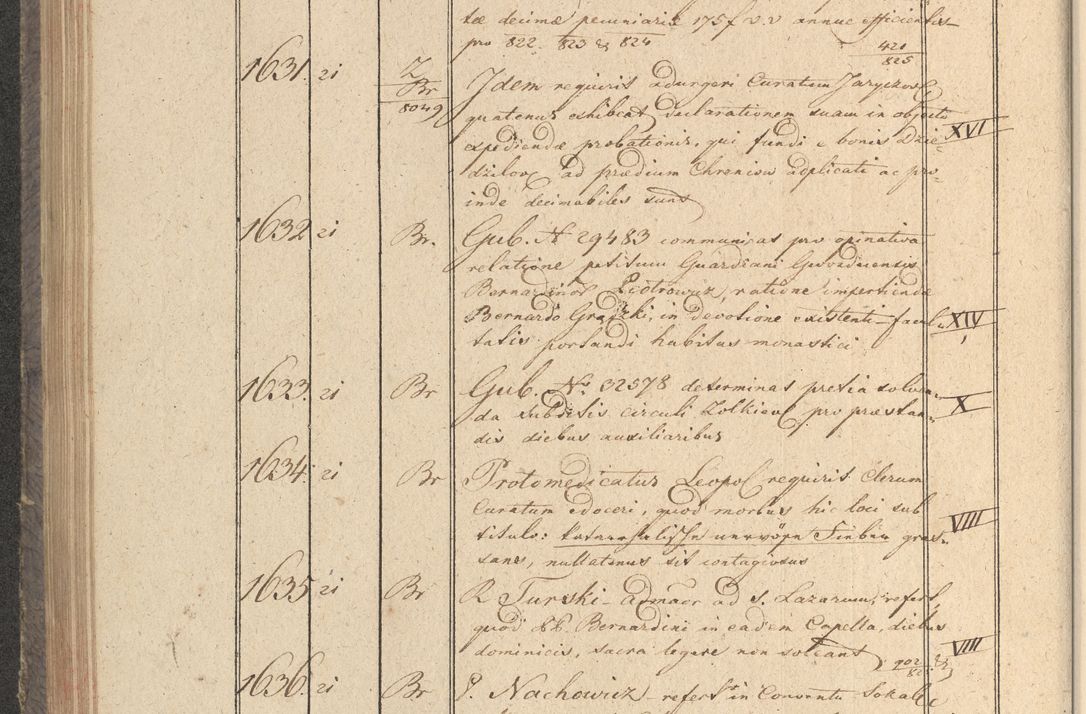 tæ decimæ pecuniariæ 175 f v.v annue efficientis
pro 822. 823 & 824
421
825
1631. 21 Z Br 8049 Idem requirit Curatum Jaryczow
quatenus exhibeat declarationem suam in objecto
expediendæ probationis, qui fundi e bonis Dzie- XVI
dzilow ad prædium Chreniow adplicati ac pro-
inde decimabiles sunt
1632 21 Br. Gub. N 29483 communicat pro opinativa
relatione petitum Guardiani Gwozdecensis
Bernardinor Piotrowicz, ratione impertiendæ
Bernardo Gradzki, in devotione existenti facul- XIV
tatis portandi habitus monastici
1633. 21 Br Gub. No 32578 determinat pretia solven-
da subditis circuli Zolkiew pro præstan- X
dis diebus auxiliaribus
1634. 21 Br Protomedicatus Leopol requirit Clerum
Curatum edoceri, quod morbus hic loci sub
titulo: katarrhalische nervöse Fieber gras- VIII
sans, nullatenus sit contagiosus
1635 21 Br R Turski Admaor ad S. Lazarum, refert,
quod PP. Bernardini in eadem Capella, diebus
dominicis, sacra legere non soleant VIII
902
82
1636. 21 Br P. Nachowicz refert in Conventu Sokale